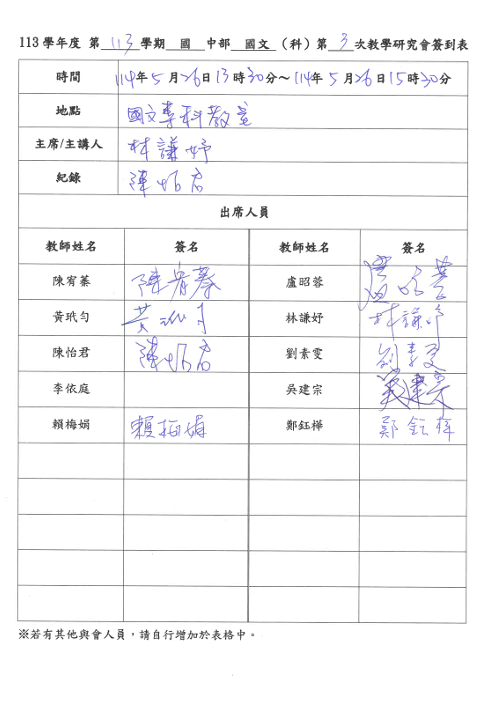 113 學年度 第 113 學期 國 中部 國文 (科) 第 3 次教學研究會簽到表
時間 114年 5 月 26日 13時 30分～ 114年 5 月 26日 15時 30分
地點 國文專科教室
主席/主講人 林謙妤
紀錄 陳怡君
出席人員
教師姓名 簽名 教師姓名 簽名
陳宥蓁 陳宥蓁 盧昭蓉 盧昭蓉
黃玳勻 黃玳勻 林謙妤 林謙妤
陳怡君 陳怡君 劉素雯 劉素雯
李依庭 吳建宗 吳建宗
賴梅娟 賴梅娟 鄭鈺樺 鄭鈺樺
※若有其他與會人員，請自行增加於表格中。